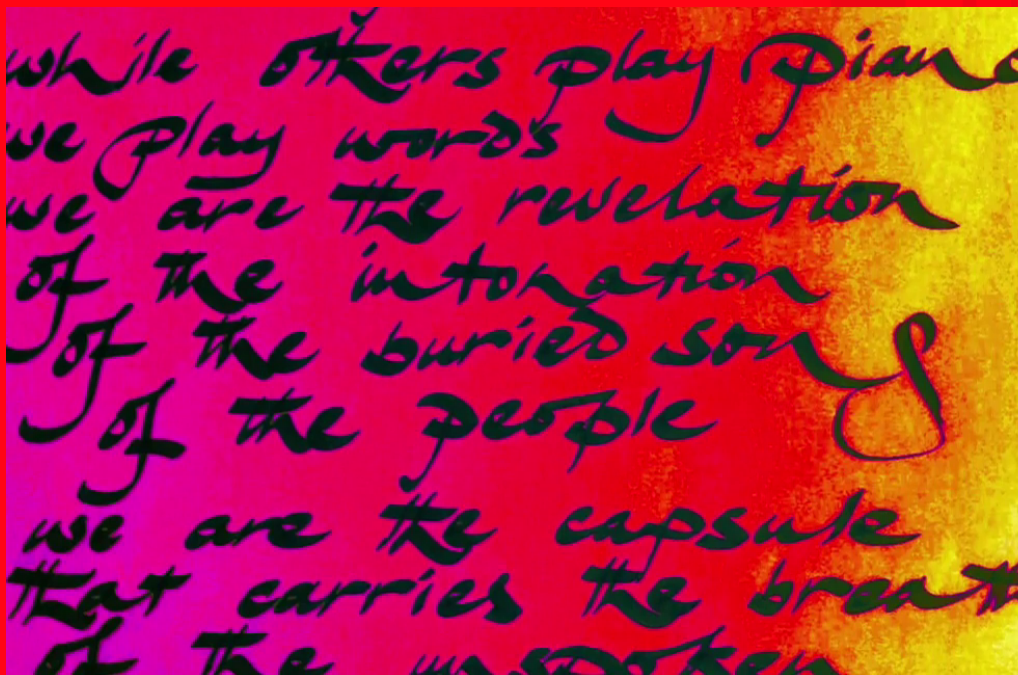 while others play piano
we play words
we are the revelation
of the intonation
of the buried song
of the people
we are the capsule
that carries the breath
of the unspoken